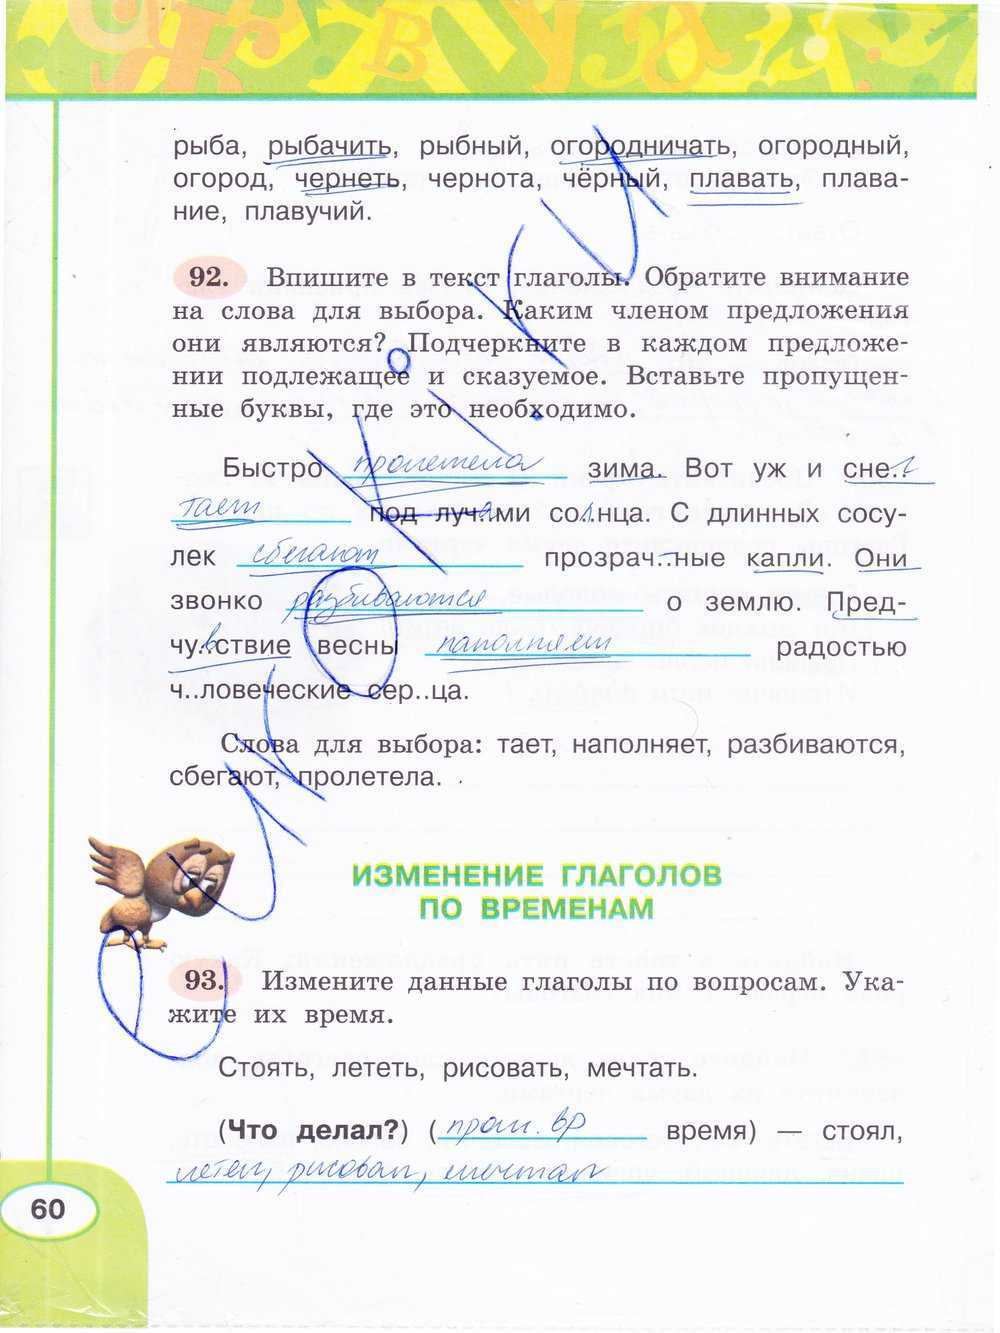 рыба, рыбачить, рыбный, огородничать, огородный,
огород, чернеть, чернота, чёрный, плавать, плава-
ние, плавучий.
92. Впишите в текст глаголы. Обратите внимание
на слова для выбора. Каким членом предложения
они являются? Подчеркните в каждом предложе-
нии подлежащее и сказуемое. Вставьте пропущен-
ные буквы, где это необходимо.
Быстро пролетела зима. Вот уж и сне.г
тает под луч.ами сол.нца. С длинных сосу-
лек сбегают прозрач..ные капли. Они
звонко разбиваются о землю. Пред-
чувствие весны наполняет радостью
ч..ловеческие сер..ца.
Слова для выбора: тает, наполняет, разбиваются,
сбегают, пролетела.
ИЗМЕНЕНИЕ ГЛАГОЛОВ
ПО ВРЕМЕНАМ
93. Измените данные глаголы по вопросам. Ука-
жите их время.
Стоять, лететь, рисовать, мечтать.
(Что делал?) (прош. вр время) — стоял,
летел, рисовал, мечтал
60